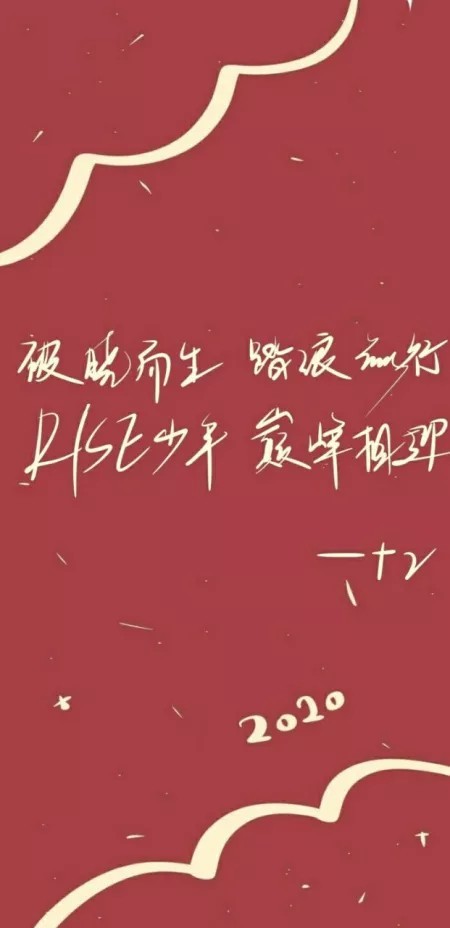 破晓而生 踏浪前行
RISE少年 巅峰相迎
一十2
2020